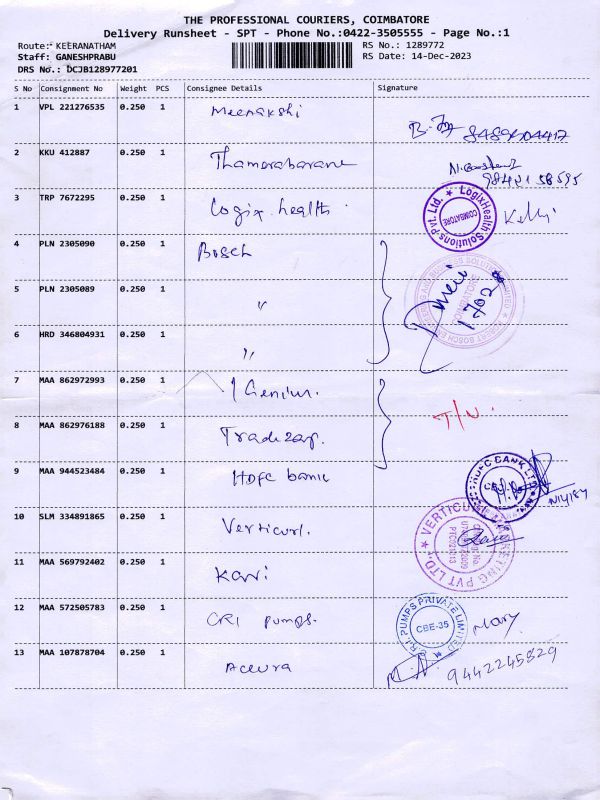 THE PROFESSIONAL COURIERS, COIMBATORE
Delivery Runsheet - SPT - Phone No.:0422-3505555 - Page No.:1
Route: KEERANATHAM RS No.: 1289772
Staff: GANESHPRABU RS Date: 14-Dec-2023
DRS No.: DCJB128977201
S No Consignment No Weight PCS Consignee Details Signature
1 VPL 221276535 0.250 1 Meenakshi
2 KKU 412887 0.250 1 Thamarabarane
3 TRP 7672295 0.250 1 Logix health
LogixHealth Solutions Pvt. Ltd. * COIMBATORE
4 PLN 2305090 0.250 1 Bosch
5 PLN 2305089 0.250 1 "
COIMBATORE
6 HRD 346804931 0.250 1 "
7 MAA 862972993 0.250 1 1 Genium.
8 MAA 862976188 0.250 1 Tradezap. T/N.
9 MAA 944523484 0.250 1 HDFC bank
HDFC BANK LTD
10 SLM 334891865 0.250 1 Verticurl.
VERTICURL MARKETING PVT LTD
11 MAA 569792402 0.250 1 Kavi
12 MAA 572505783 0.250 1 CRI pumps. Mary
C.R.I. PUMPS PRIVATE LIMITED * CBE-35
13 MAA 107878704 0.250 1 Aceura 9442245829